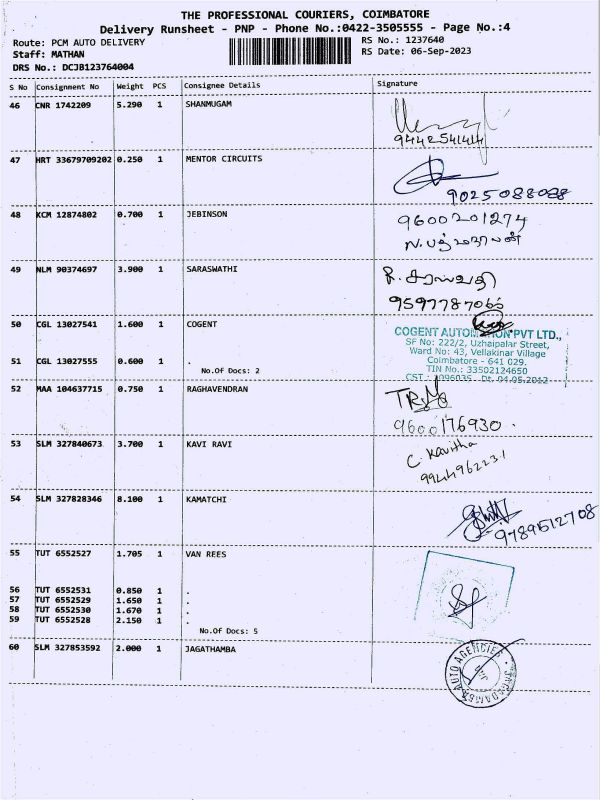 THE PROFESSIONAL COURIERS, COIMBATORE
Delivery Runsheet - PNP - Phone No.:0422-3505555 - Page No.:4
Route: PCM AUTO DELIVERY RS No.: 1237640
Staff: MATHAN RS Date: 06-Sep-2023
DRS No.: DCJB123764004
S No Consignment No Weight PCS Consignee Details Signature
46 CNR 1742209 5.290 1 SHANMUGAM
9442541414
47 HRT 33679709202 0.250 1 MENTOR CIRCUITS
9025088088
48 KCM 12874802 0.700 1 JEBINSON 9600201274
49 NLM 90374697 3.900 1 SARASWATHI R. சரஸ்வதி
9597787065
50 CGL 13027541 1.600 1 COGENT
COGENT AUTOMATION PVT LTD.,
SF No: 222/2, Uzhaipalar Street,
Ward No: 43, Vellakinar Village
51 CGL 13027555 0.600 1 . Coimbatore - 641 029.
No.Of Docs: 2 TIN No.: 33502124650
CST : 1096035 Dt. 04.05.2012
52 MAA 104637715 0.750 1 RAGHAVENDRAN
9600176930
53 SLM 327840673 3.700 1 KAVI RAVI C. Kavitha
9944962231
54 SLM 327828346 8.100 1 KAMATCHI
9789512708
55 TUT 6552527 1.705 1 VAN REES
56 TUT 6552531 0.850 1 .
57 TUT 6552529 1.650 1 .
58 TUT 6552530 1.670 1 .
59 TUT 6552528 2.150 1 .
No.Of Docs: 5
60 SLM 327853592 2.000 1 JAGATHAMBA
JAGADAMBA AUTO AGENCIES